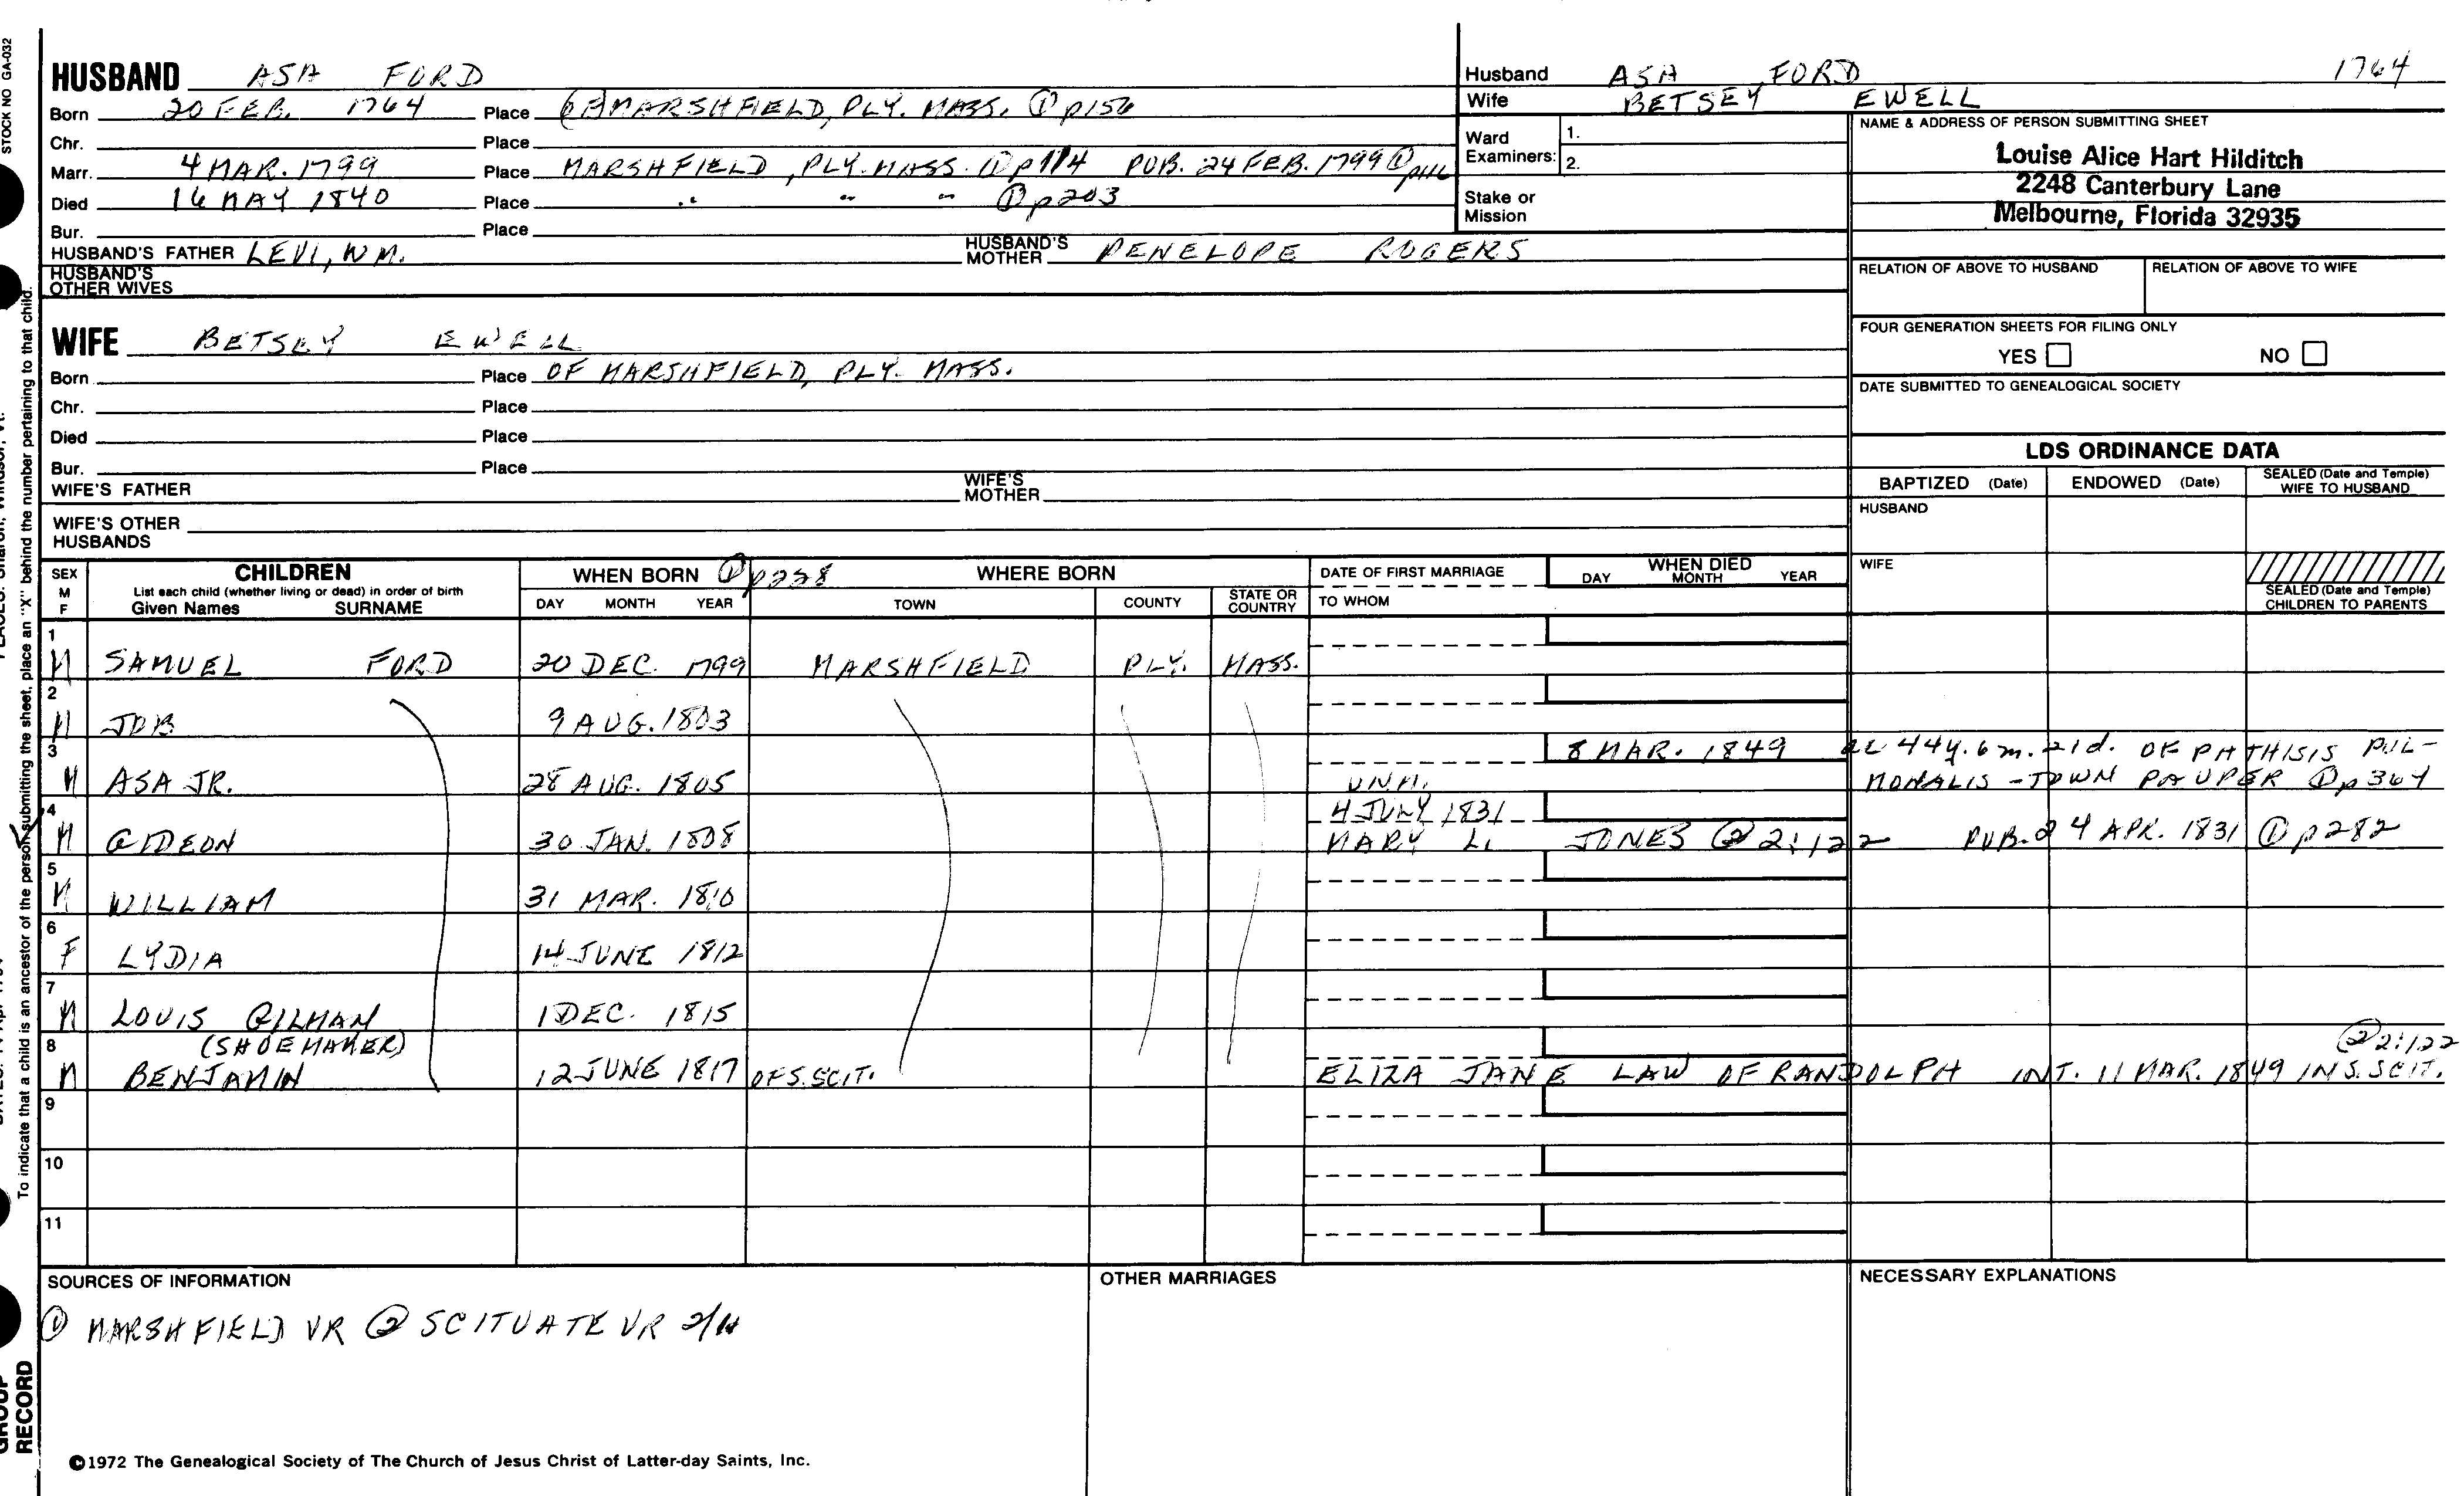 STOCK NO GA-032
HUSBAND ASA FORD
Born 20 FEB. 1764 Place MARSHFIELD, PLY. MASS. ① p156
Chr. Place
Marr. 4 MAR. 1799 Place MARSHFIELD, PLY. MASS. ① p114 PUB. 24 FEB. 1799 ①
Died 16 MAY 1840 Place " " " ① p203
Bur. Place
HUSBAND'S FATHER LEVI, WM. HUSBAND'S MOTHER PENELOPE ROGERS
HUSBAND'S OTHER WIVES
Husband ASA FORD 1764
Wife BETSEY EWELL
Ward Examiners: 1.
2.
Stake or Mission
NAME & ADDRESS OF PERSON SUBMITTING SHEET
Louise Alice Hart Hilditch
2248 Canterbury Lane
Melbourne, Florida 32935
RELATION OF ABOVE TO HUSBAND RELATION OF ABOVE TO WIFE
FOUR GENERATION SHEETS FOR FILING ONLY
YES NO
DATE SUBMITTED TO GENEALOGICAL SOCIETY
WIFE BETSEY EWELL
Born Place OF MARSHFIELD, PLY. MASS.
Chr. Place
Died Place
Bur. Place
WIFE'S FATHER WIFE'S MOTHER
WIFE'S OTHER HUSBANDS
LDS ORDINANCE DATA
BAPTIZED (Date) ENDOWED (Date) SEALED (Date and Temple) WIFE TO HUSBAND
HUSBAND
WIFE
SEALED (Date and Temple) CHILDREN TO PARENTS
SEX M F
CHILDREN
List each child (whether living or dead) in order of birth
Given Names SURNAME
WHEN BORN ① p238 WHERE BORN
DAY MONTH YEAR TOWN COUNTY STATE OR COUNTRY
DATE OF FIRST MARRIAGE
TO WHOM
WHEN DIED
DAY MONTH YEAR
1
M SAMUEL FORD 20 DEC. 1799 MARSHFIELD PLY. MASS.
2
M JOB 9 AUG. 1803
3 8 MAR. 1849 ae 44y. 6m. 21d. OF PHTHISIS PUL-
M ASA JR. 28 AUG. 1805 UNM. MONALIS - TOWN PAUPER ① p364
4 4 JULY 1831
M GIDEON 30 JAN. 1808 MARY L. JONES ② 2:122 PUB. 24 APR. 1831 ① p282
5
M WILLIAM 31 MAR. 1810
6
F LYDIA 14 JUNE 1812
7
M LOUIS GILMAN 1 DEC. 1815
8 (SHOEMAKER) ② 2:122
M BENJAMIN 12 JUNE 1817 OF S. SCIT. ELIZA JANE LAW OF RANDOLPH INT. 11 MAR. 1849 IN S. SCIT.
9
10
11
SOURCES OF INFORMATION OTHER MARRIAGES NECESSARY EXPLANATIONS
① MARSHFIELD VR ② SCITUATE VR
©1972 The Genealogical Society of The Church of Jesus Christ of Latter-day Saints, Inc.
To indicate that a child is an ancestor of the person submitting the sheet, place an "X" behind the number pertaining to that child.
GROUP
RECORD